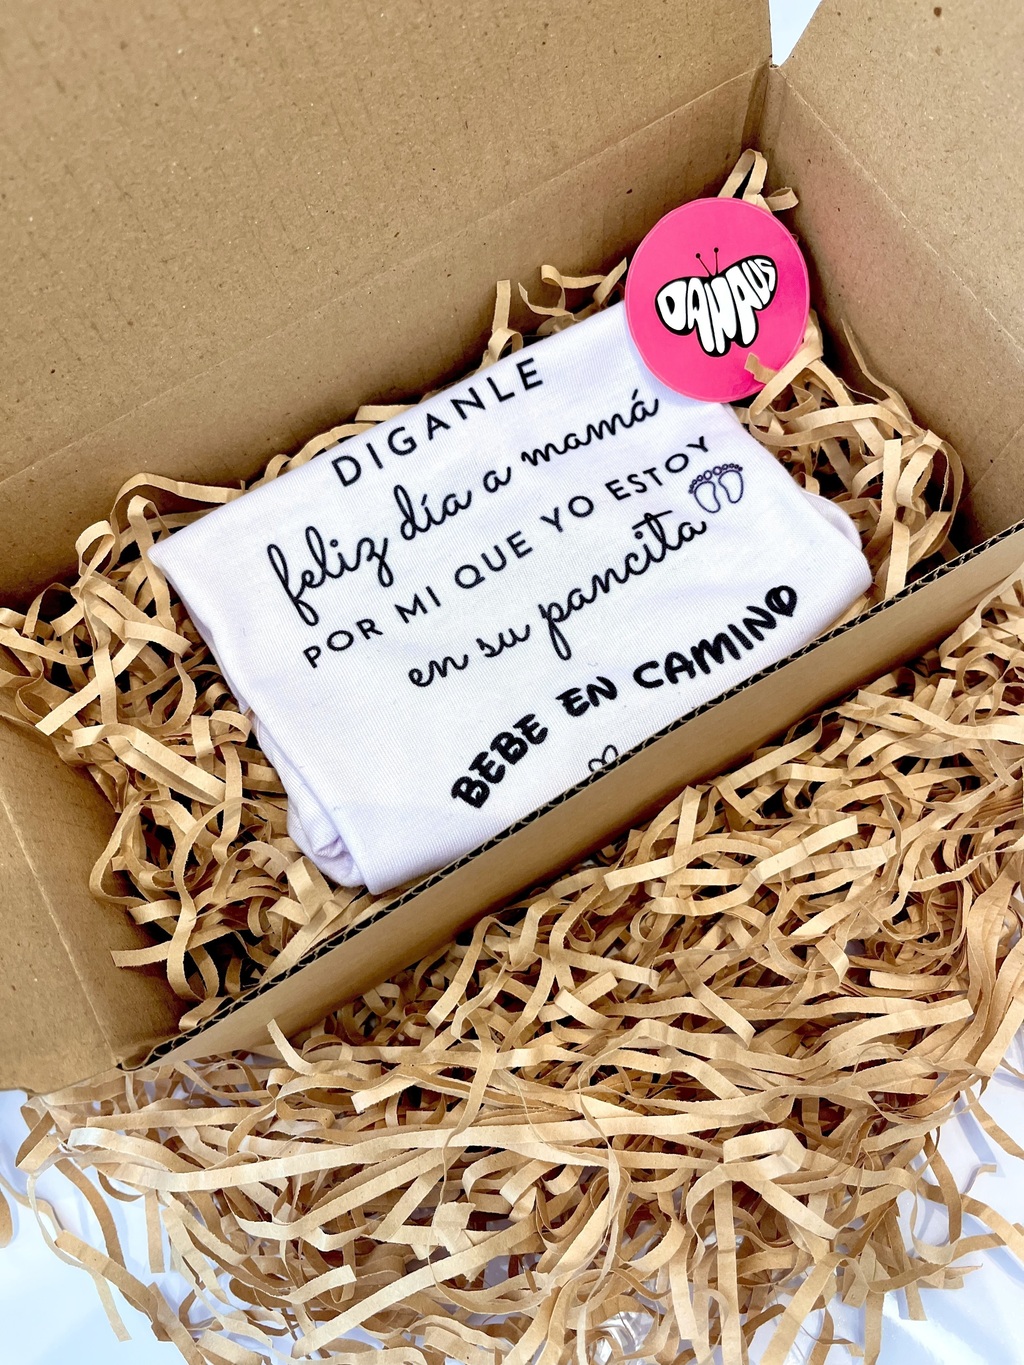 DANAUS
DIGANLE
feliz día a mamá
POR MI QUE YO ESTOY
en su pancita
BEBE EN CAMINO